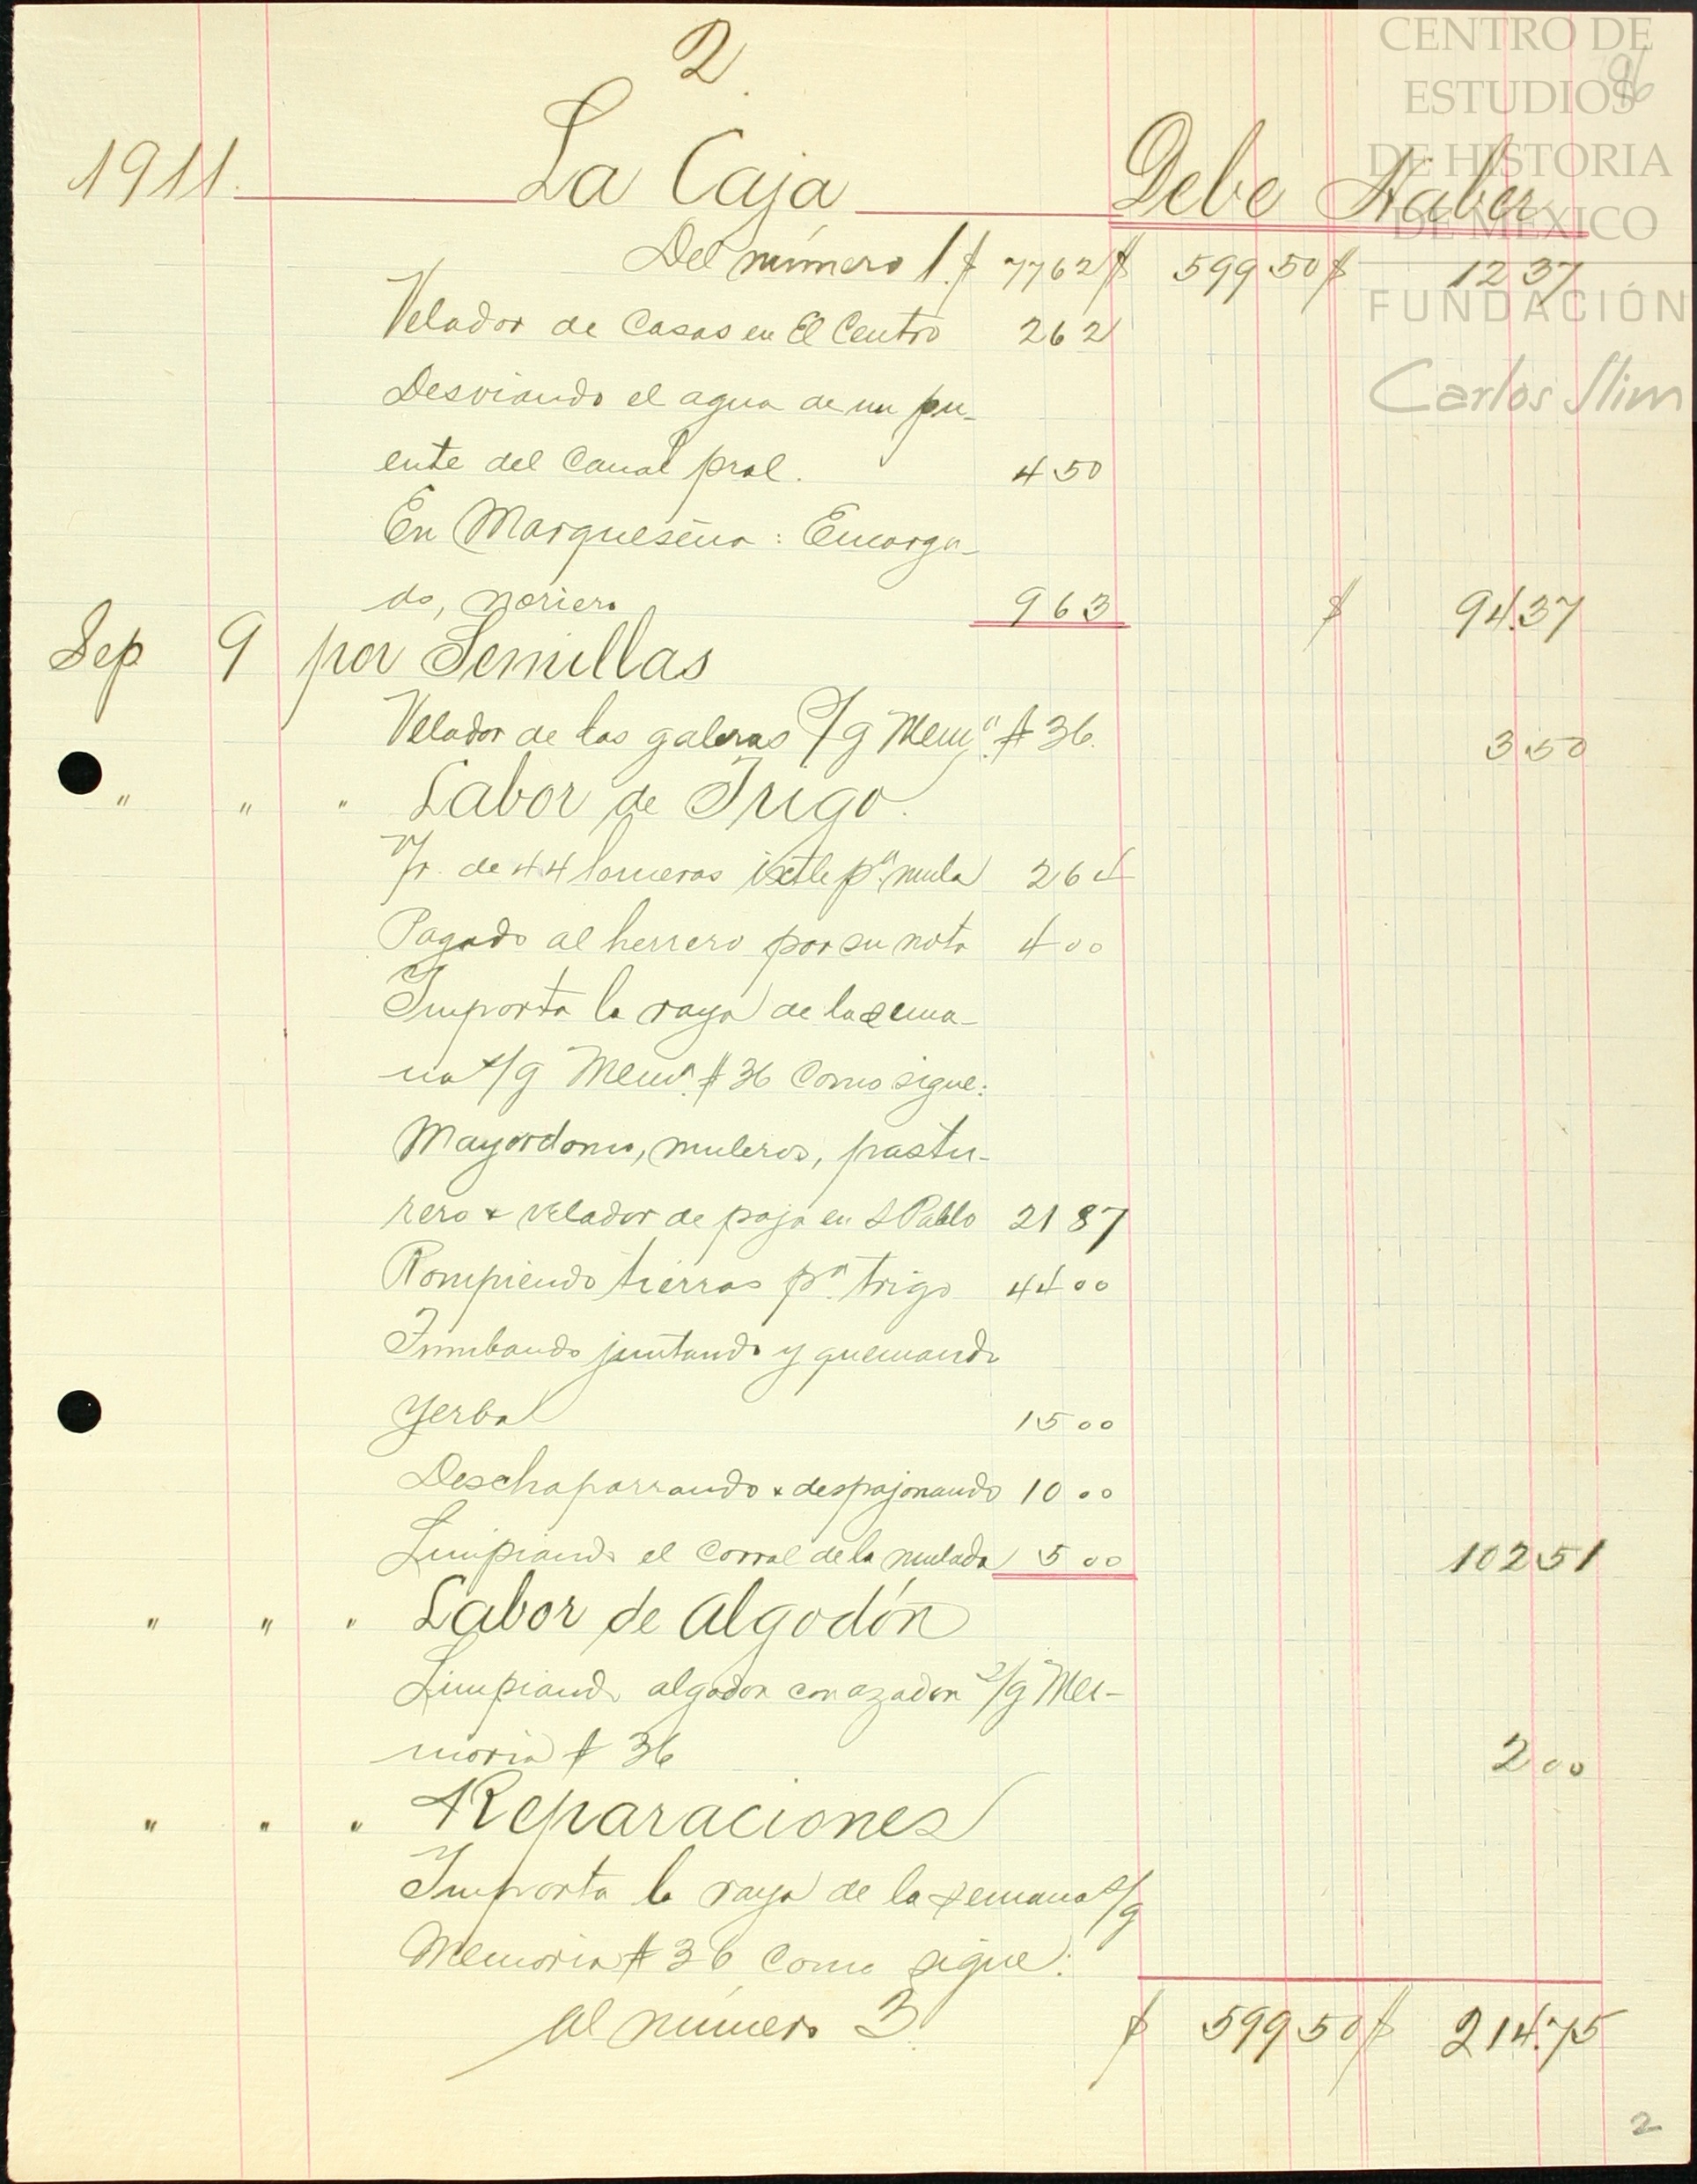 2
96
CENTRO DE
ESTUDIOS
DE HISTORIA
DE MÉXICO
FUNDACIÓN
Carlos Slim
1911. La Caja Debe Haber
Del número 1. $ 77 62 $ 599 50 $ 12 37
Velador de Casas en El Centro 2 62
Desviando el agua de un pu-
ente del Canal pral. 4 50
En Marqueseña: Encarga-
do, noriero 9 63 $ 94.37
Sep 9 por Semillas
Velador de las galeras s/g Mema. # 36. 3 50
" " " Labor de Trigo.
de 44 lomeras ixtle pa. mula 2 64
Pagado al herrero por su nota 4 00
Importa la raya de la sema-
na s/g Mema. # 36 como sigue:
Mayordomo, muleros, pastu-
rero & velador de paja en S Pablo 21 87
Rompiendo tierras pa. trigo 44 00
Tumbando juntando y quemando
Yerba 15 00
Deschaparrando & despajonando 10 00
Limpiando el corral de la mulada 5 00 102 51
" " " Labor de Algodón
Limpiando algodon con azadon s/g Me-
moria # 36 2 00
" " " Reparaciones
Importa la raya de la semana s/g
Memoria # 36 como sigue:
Al número 3. $ 599 50 $ 214.75
2